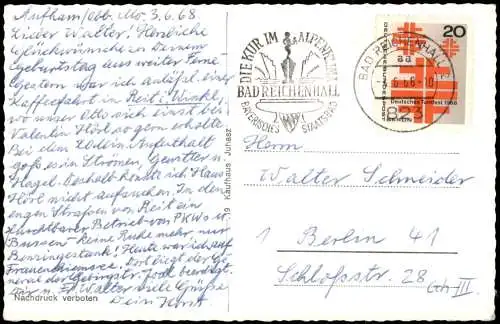 Aufham/Obb. Mo. 3.6.68
Lieber Walter! Herzliche
Glückwünsche zu Deinem
Geburtstag aus weiter Ferne
Gestern war ich anläßl. einer
Kaffeefahrt in Reit i. Winkl,
wo unser Otto sich einst bei
Valentin Hörl so gern erholte.
Bei dem Aufenthalt
goß es in Strömen, Gewitter u.
Hagel. Deshalb konnte ich Haus
Hörl nicht aufsuchen. In den
engen Straßen von Reit ein
furchtbarer Betrieb von PKWs u.
Bussen - keine Ruhe mehr, nur
Benzingestank! Heute war ich auf
Frauenchiemsee. Dort liegt der Ge-
neral der Gebirgstr. Jodl beerdigt.
Dir u. Walter viele Grüße
Dein Horst
Nachdruck verboten
19 Kaufhaus Juhasz
DIE KUR IM ALPENKLIMA
BAD REICHENHALL
BAYERISCHES STAATSBAD
BAD REICHENHALL
aa
823
DEUTSCHE BUNDESPOST
20
Deutsches Turnfest 1968
Herrn
Walter Schneider
1 Berlin 41
Schloßstr. 28
Gth III